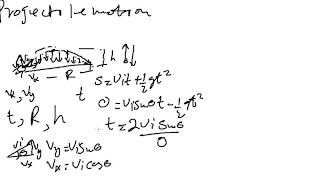 Projectile motion
h
Vx - R
Vx, Vy t
S = Vit + 1/2 gt²
0 = Vi sinθt - 1/2 gt²
t, R, h
t = 2Vi sinθ / 0
Vi Vy Vy = Vi sinθ
θ Vx Vx = Vi cosθ